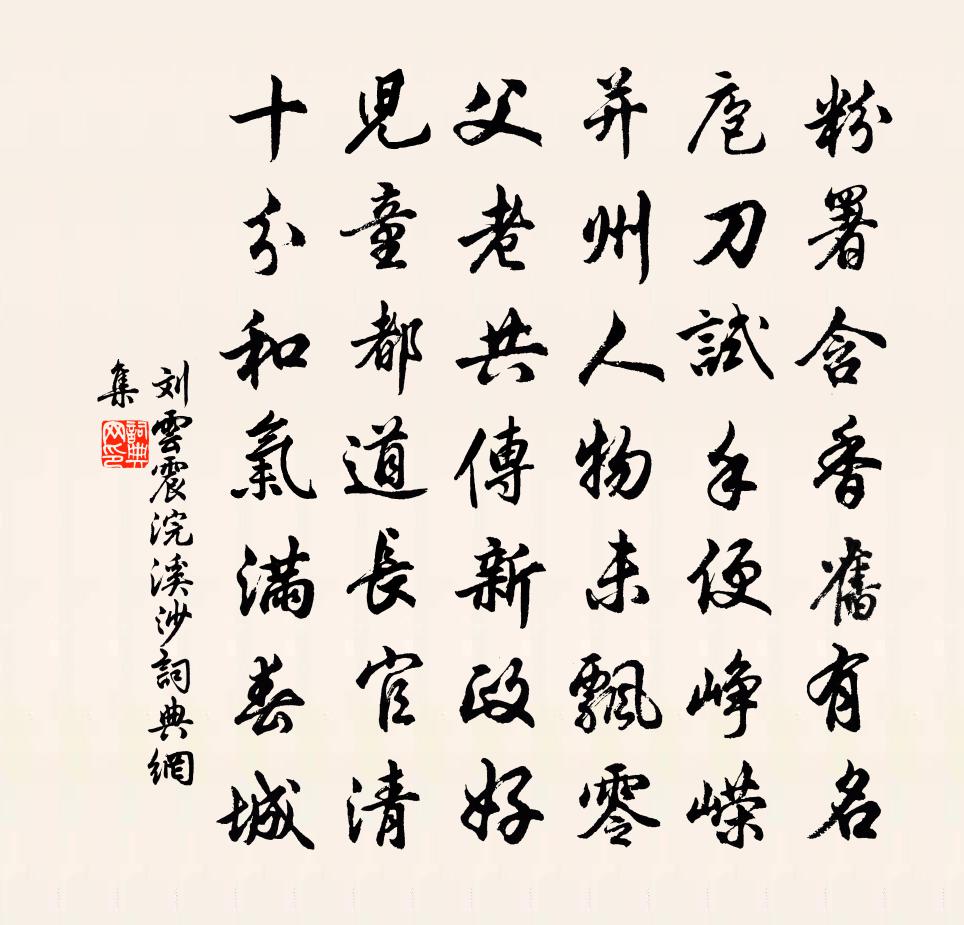 粉署含香舊有名
庖刀試手便崢嶸
并州人物未飄零
父老共傳新政好
兒童都道長官清
十分和氣滿春城
刘雲震浣溪沙詞典網
集
詞典
网印